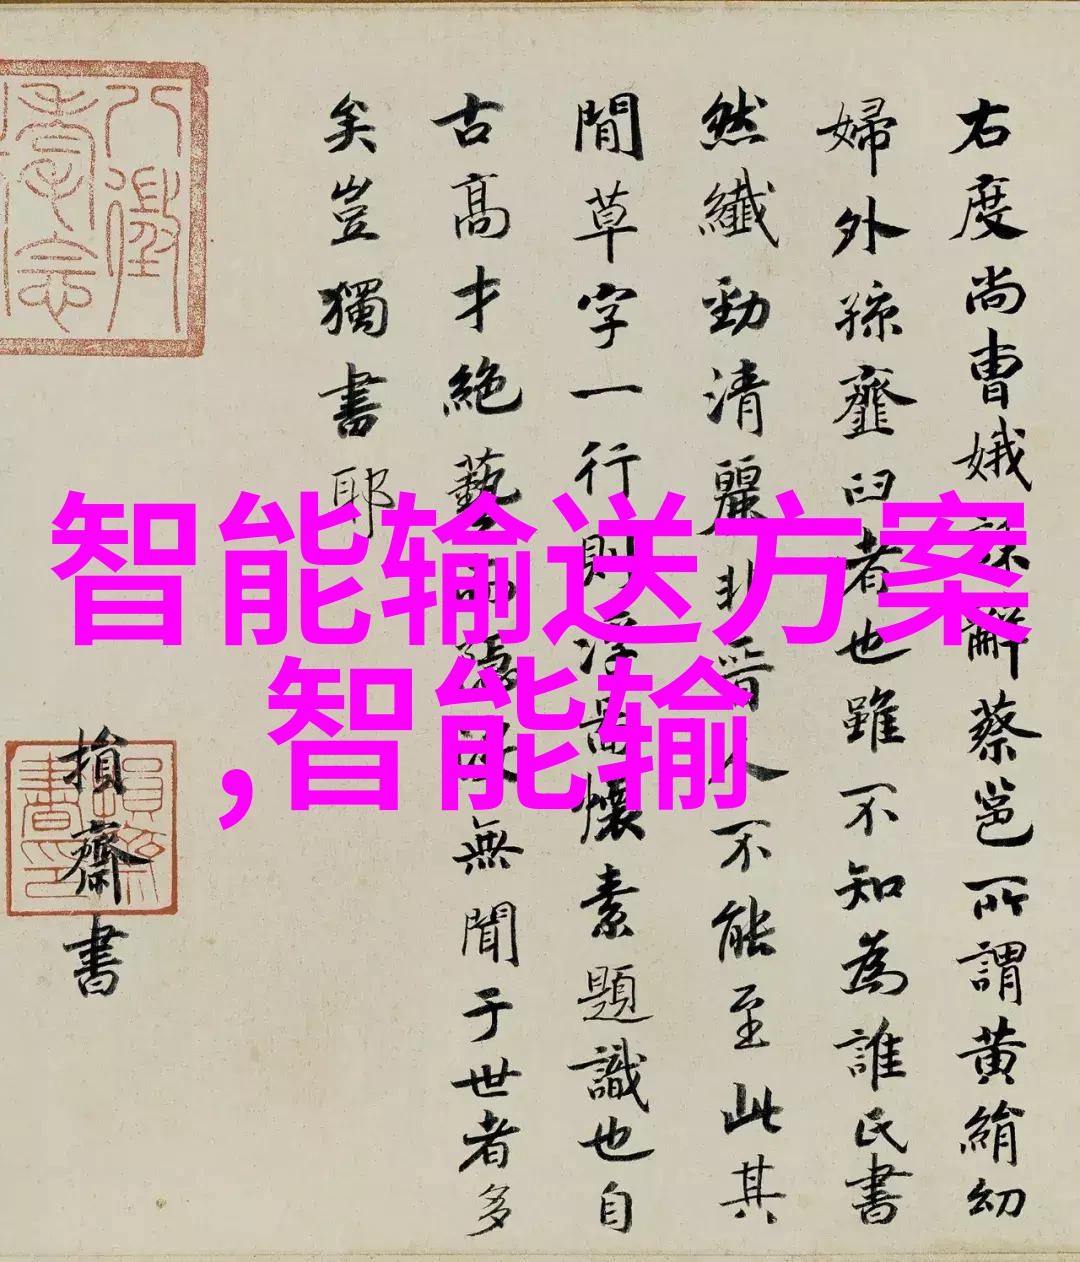 右度尚曹娥誄辭蔡邕所謂黃絹幼
婦外孫韲臼者也雖不知為誰氏書
然纖勁清麗非晉人不能至此其
閒草字一行則浮屠懷素題識也自
古高才絕藝而隱沒無聞于世者多
矣豈獨書耶
損齋書
損齋書印
智能输送方案
,智能输